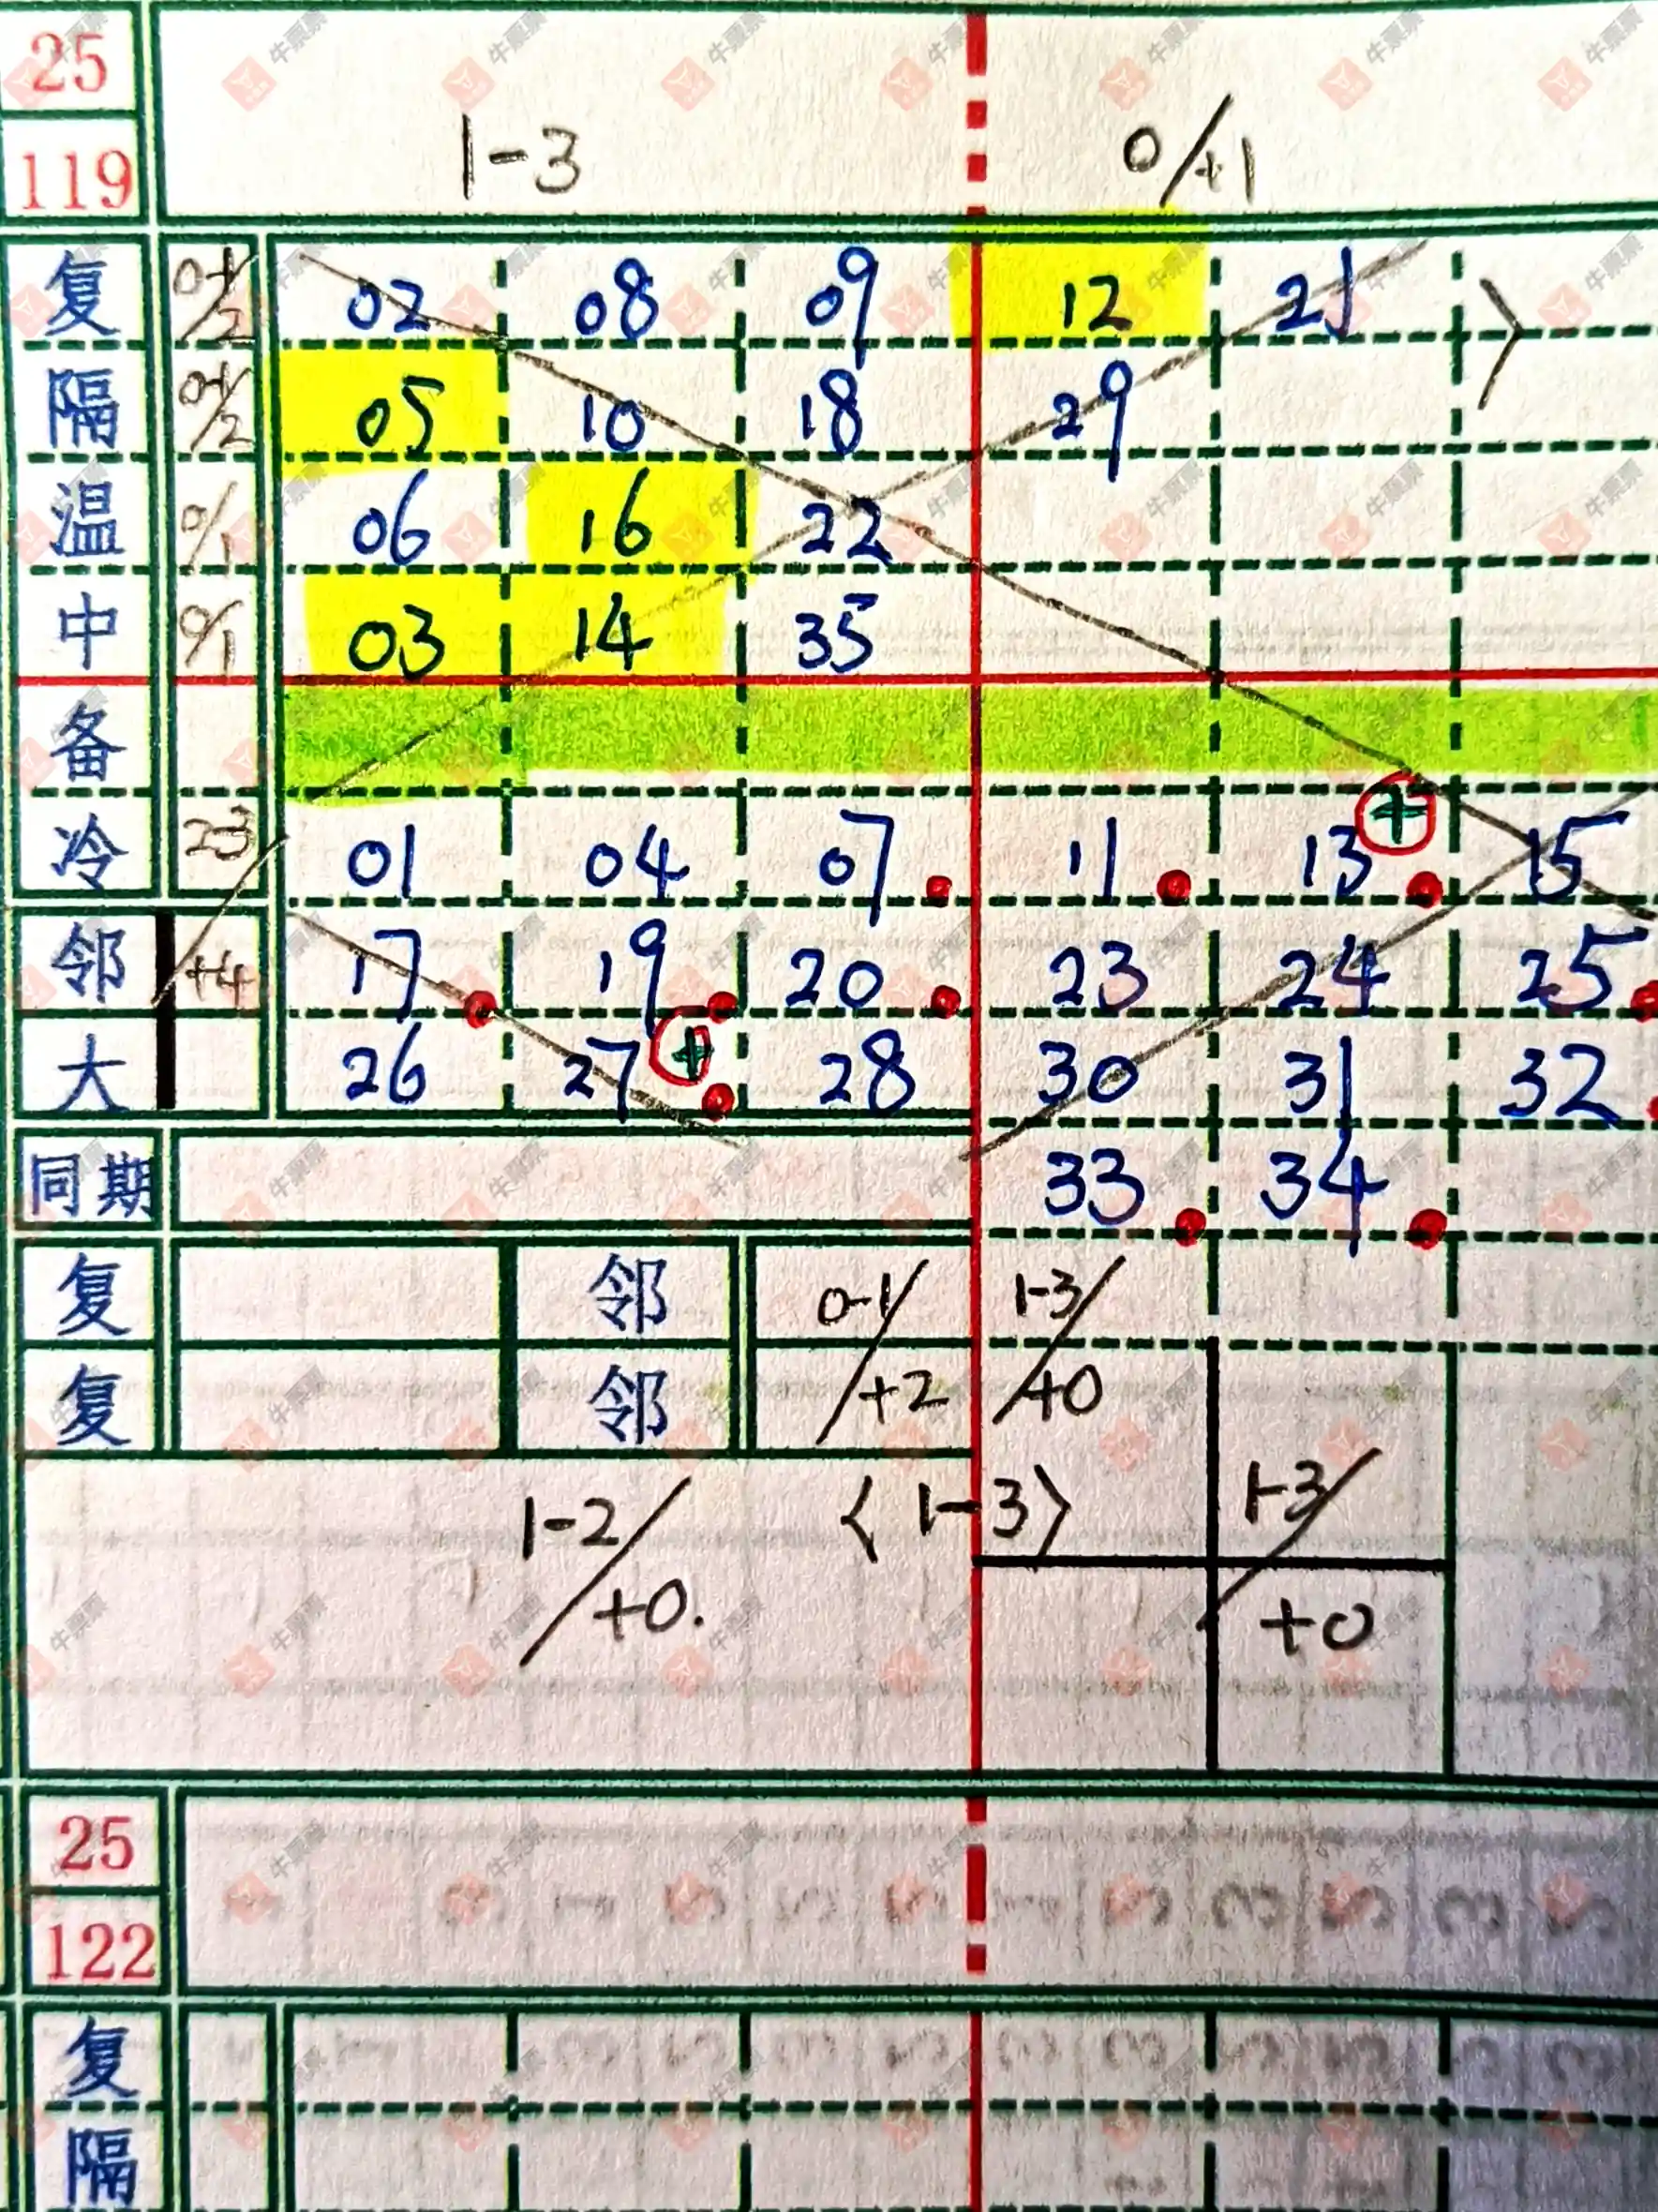 25
119 1-3 0/+1
复 0-1/2 02 08 09 12 21
隔 0-1/2 05 10 18 29
温 0/1 06 16 22
中 0/1 03 14 35
备
冷 2-3 01 04 07 11 13 + 15
邻 +4 17 19 20 23 24 25
大 26 27 + 28 30 31 32
同期 33 34
复 邻 0-1/ 1-3/
复 邻 +2 +0
1-2/ 〈1-3〉 1-3/
+0. +0
25
122
复
隔
牛票票